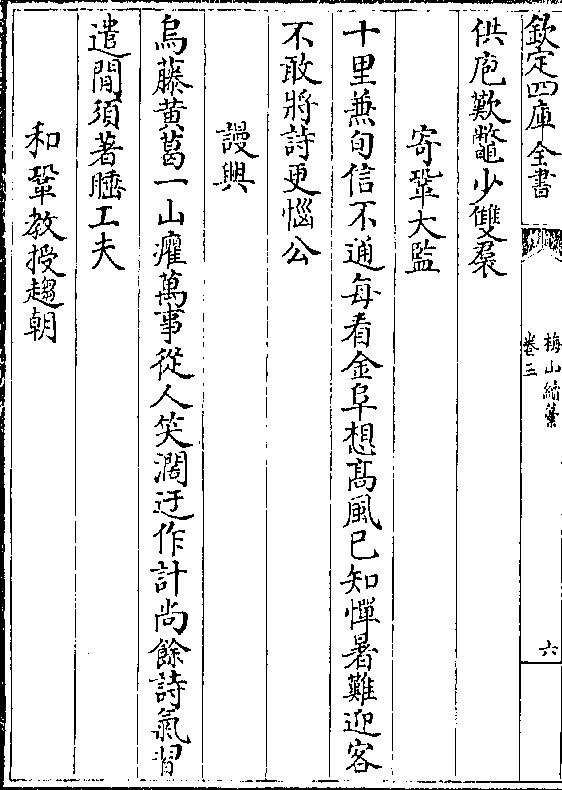 欽定四庫全書
梅山續藁
卷三
六
供庖歎鼈少雙裠
寄鞏大監
十里兼旬信不通每看金阜想髙風已知憚暑難迎客
不敢將詩更惱公
謾興
烏藤黄葛一山癯萬事從人笑濶迂作計尚餘詩氣習
遣閒須著睡工夫
和鞏教授趨朝